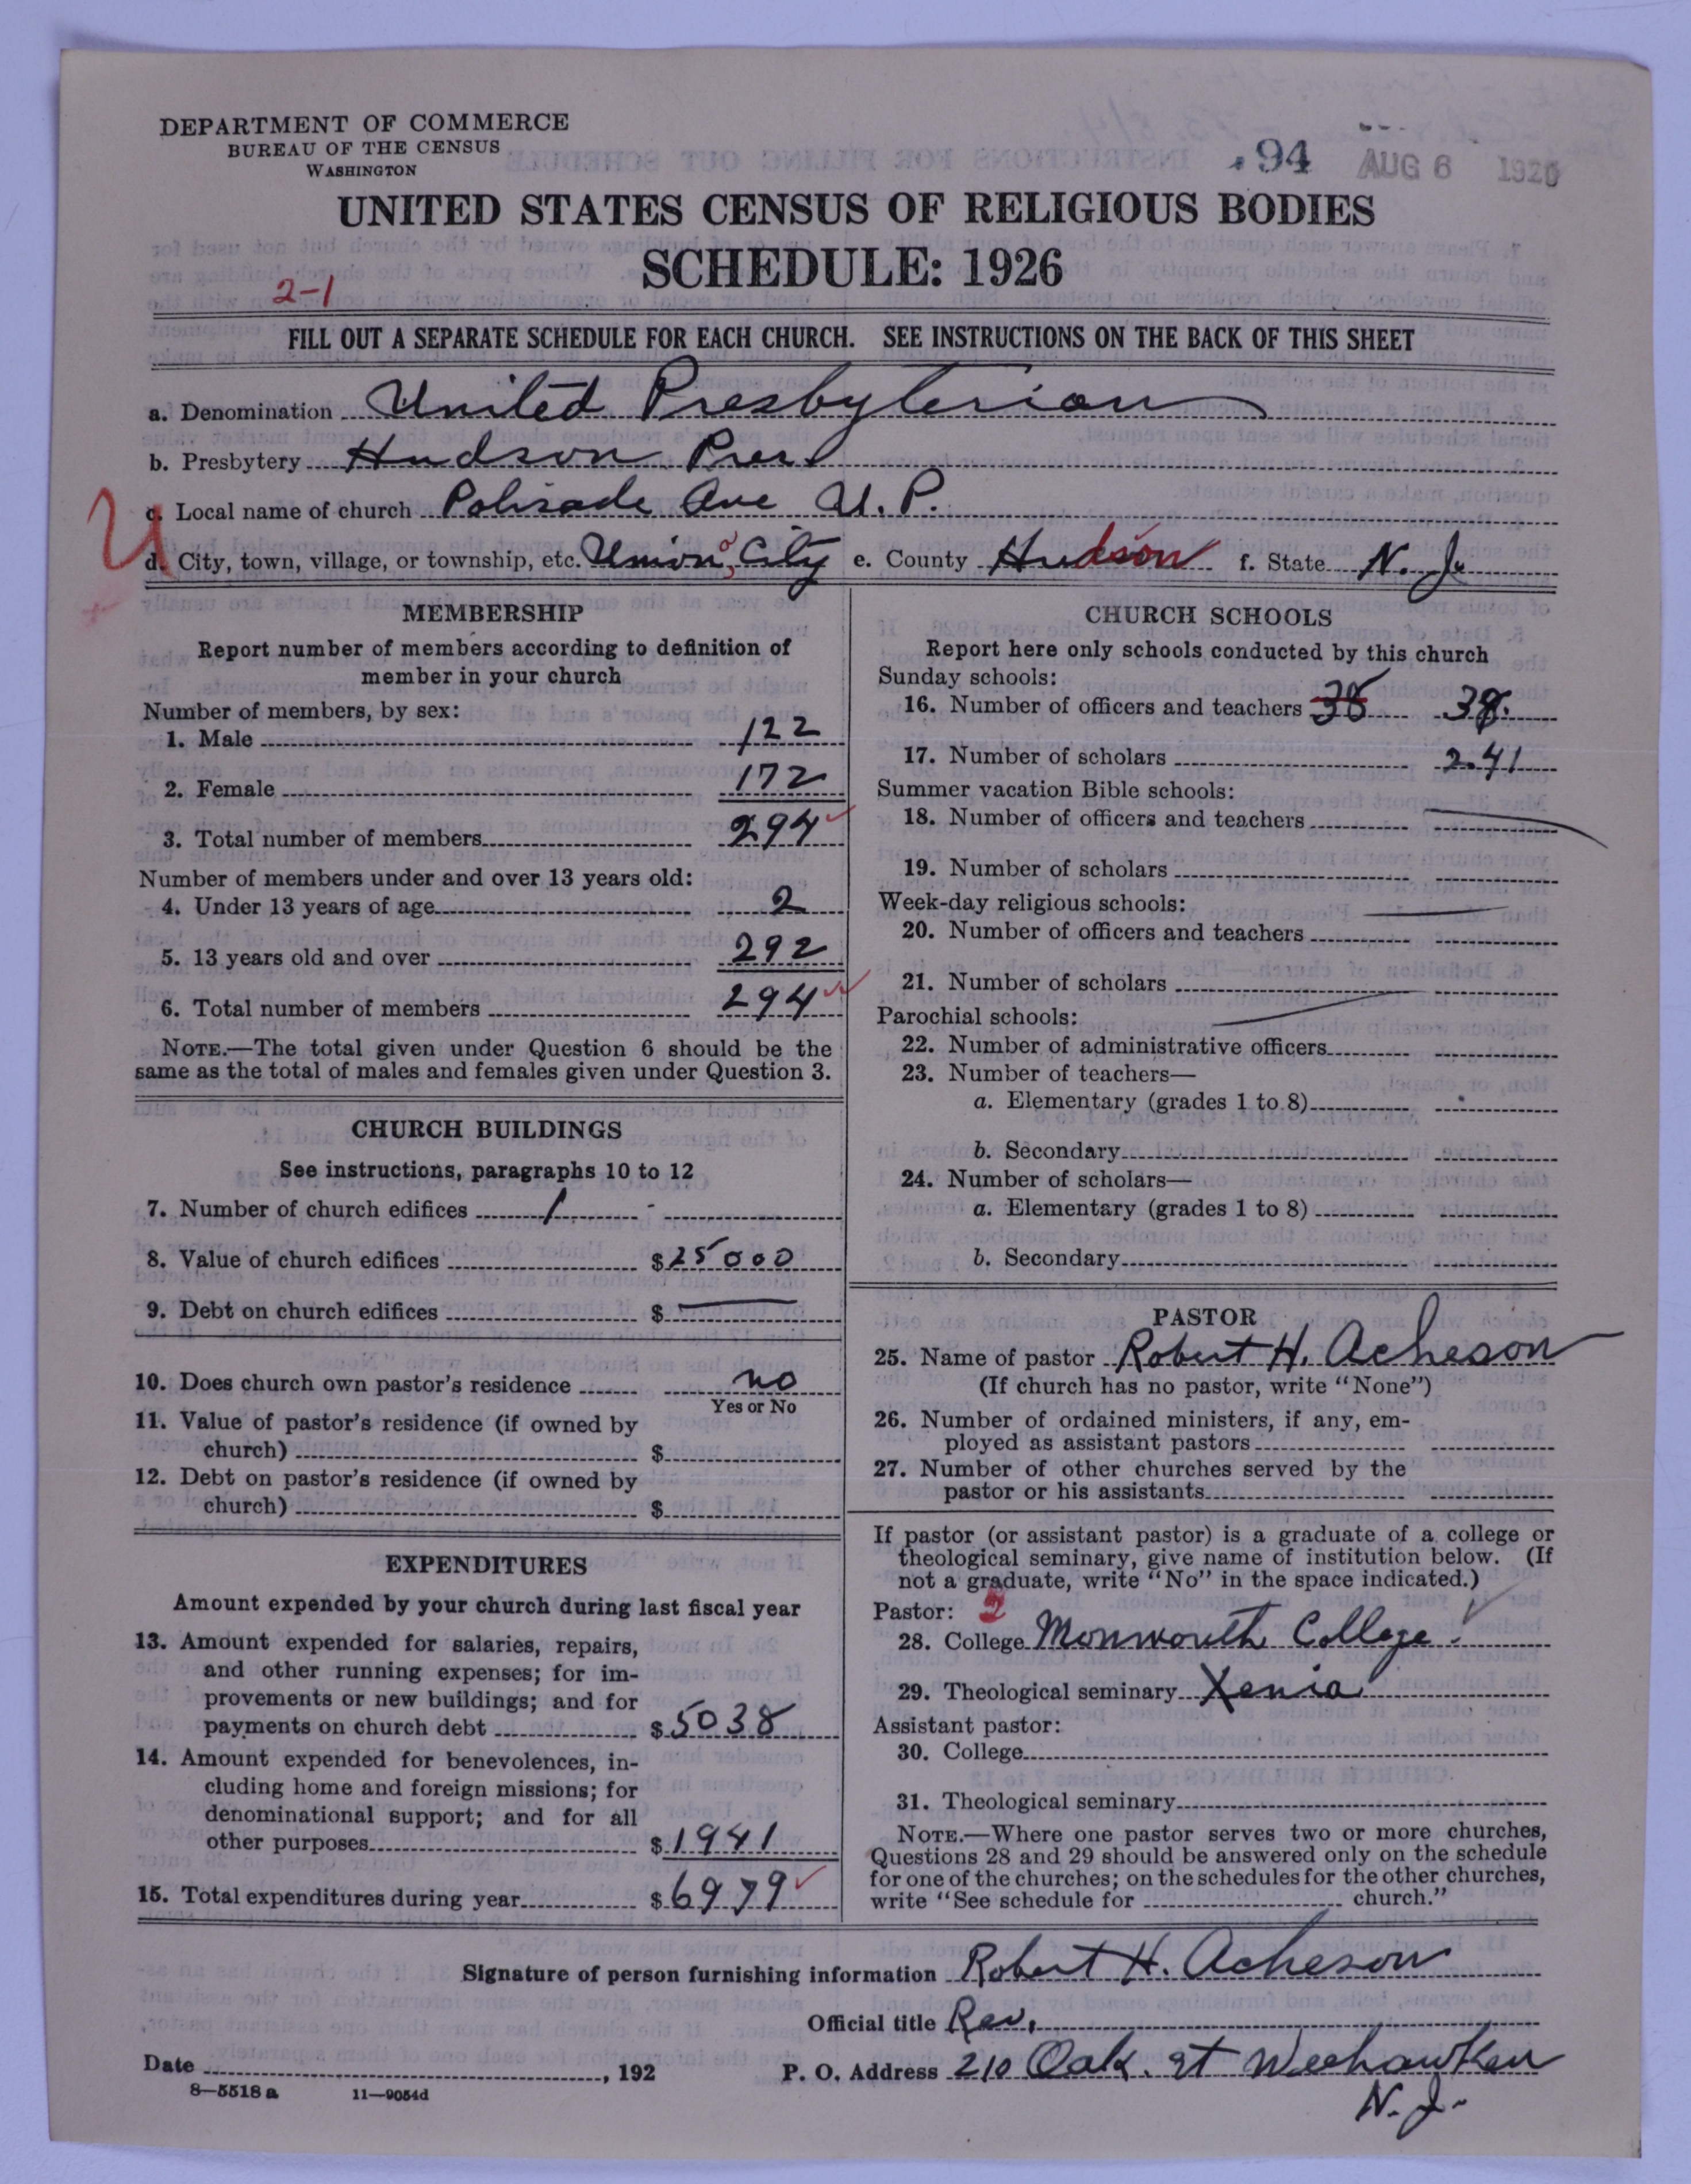 DEPARTMENT OF COMMERCE
BUREAU OF THE CENSUS
WASHINGTON
94 AUG 6 1926
UNITED STATES CENSUS OF RELIGIOUS BODIES
SCHEDULE: 1926
2-1
FILL OUT A SEPARATE SCHEDULE FOR EACH CHURCH. SEE INSTRUCTIONS ON THE BACK OF THIS SHEET
a. Denomination United Presbyterian
b. Presbytery Hudson Pres
c. Local name of church Palisade Ave U.P.
U
d. City, town, village, or township, etc. Union City e. County Hudson f. State N. J.
MEMBERSHIP
Report number of members according to definition of
member in your church
Number of members, by sex:
1. Male 122
2. Female 172
3. Total number of members 294
Number of members under and over 13 years old:
4. Under 13 years of age 2
5. 13 years old and over 292
6. Total number of members 294
NOTE.—The total given under Question 6 should be the
same as the total of males and females given under Question 3.
CHURCH BUILDINGS
See instructions, paragraphs 10 to 12
7. Number of church edifices 1
8. Value of church edifices $25000
9. Debt on church edifices $
10. Does church own pastor's residence no
Yes or No
11. Value of pastor's residence (if owned by
church) $
12. Debt on pastor's residence (if owned by
church) $
EXPENDITURES
Amount expended by your church during last fiscal year
13. Amount expended for salaries, repairs,
and other running expenses; for im-
provements or new buildings; and for
payments on church debt $5038
14. Amount expended for benevolences, in-
cluding home and foreign missions; for
denominational support; and for all
other purposes $1941
15. Total expenditures during year $6979
CHURCH SCHOOLS
Report here only schools conducted by this church
Sunday schools:
16. Number of officers and teachers 38 38.
17. Number of scholars 241
Summer vacation Bible schools:
18. Number of officers and teachers
19. Number of scholars
Week-day religious schools:
20. Number of officers and teachers
21. Number of scholars
Parochial schools:
22. Number of administrative officers
23. Number of teachers—
a. Elementary (grades 1 to 8)
b. Secondary
24. Number of scholars—
a. Elementary (grades 1 to 8)
b. Secondary
PASTOR
25. Name of pastor Robert H. Acheson
(If church has no pastor, write "None")
26. Number of ordained ministers, if any, em-
ployed as assistant pastors
27. Number of other churches served by the
pastor or his assistants
If pastor (or assistant pastor) is a graduate of a college or
theological seminary, give name of institution below. (If
not a graduate, write "No" in the space indicated.)
Pastor: 2
28. College Monmouth College
29. Theological seminary Xenia
Assistant pastor:
30. College
31. Theological seminary
NOTE.—Where one pastor serves two or more churches,
Questions 28 and 29 should be answered only on the schedule
for one of the churches; on the schedules for the other churches,
write "See schedule for church."
Signature of person furnishing information Robert H. Acheson
Official title Rev.
Date , 192 P. O. Address 210 Oak St Weehawken
N. J.
8—5518a 11—9054d